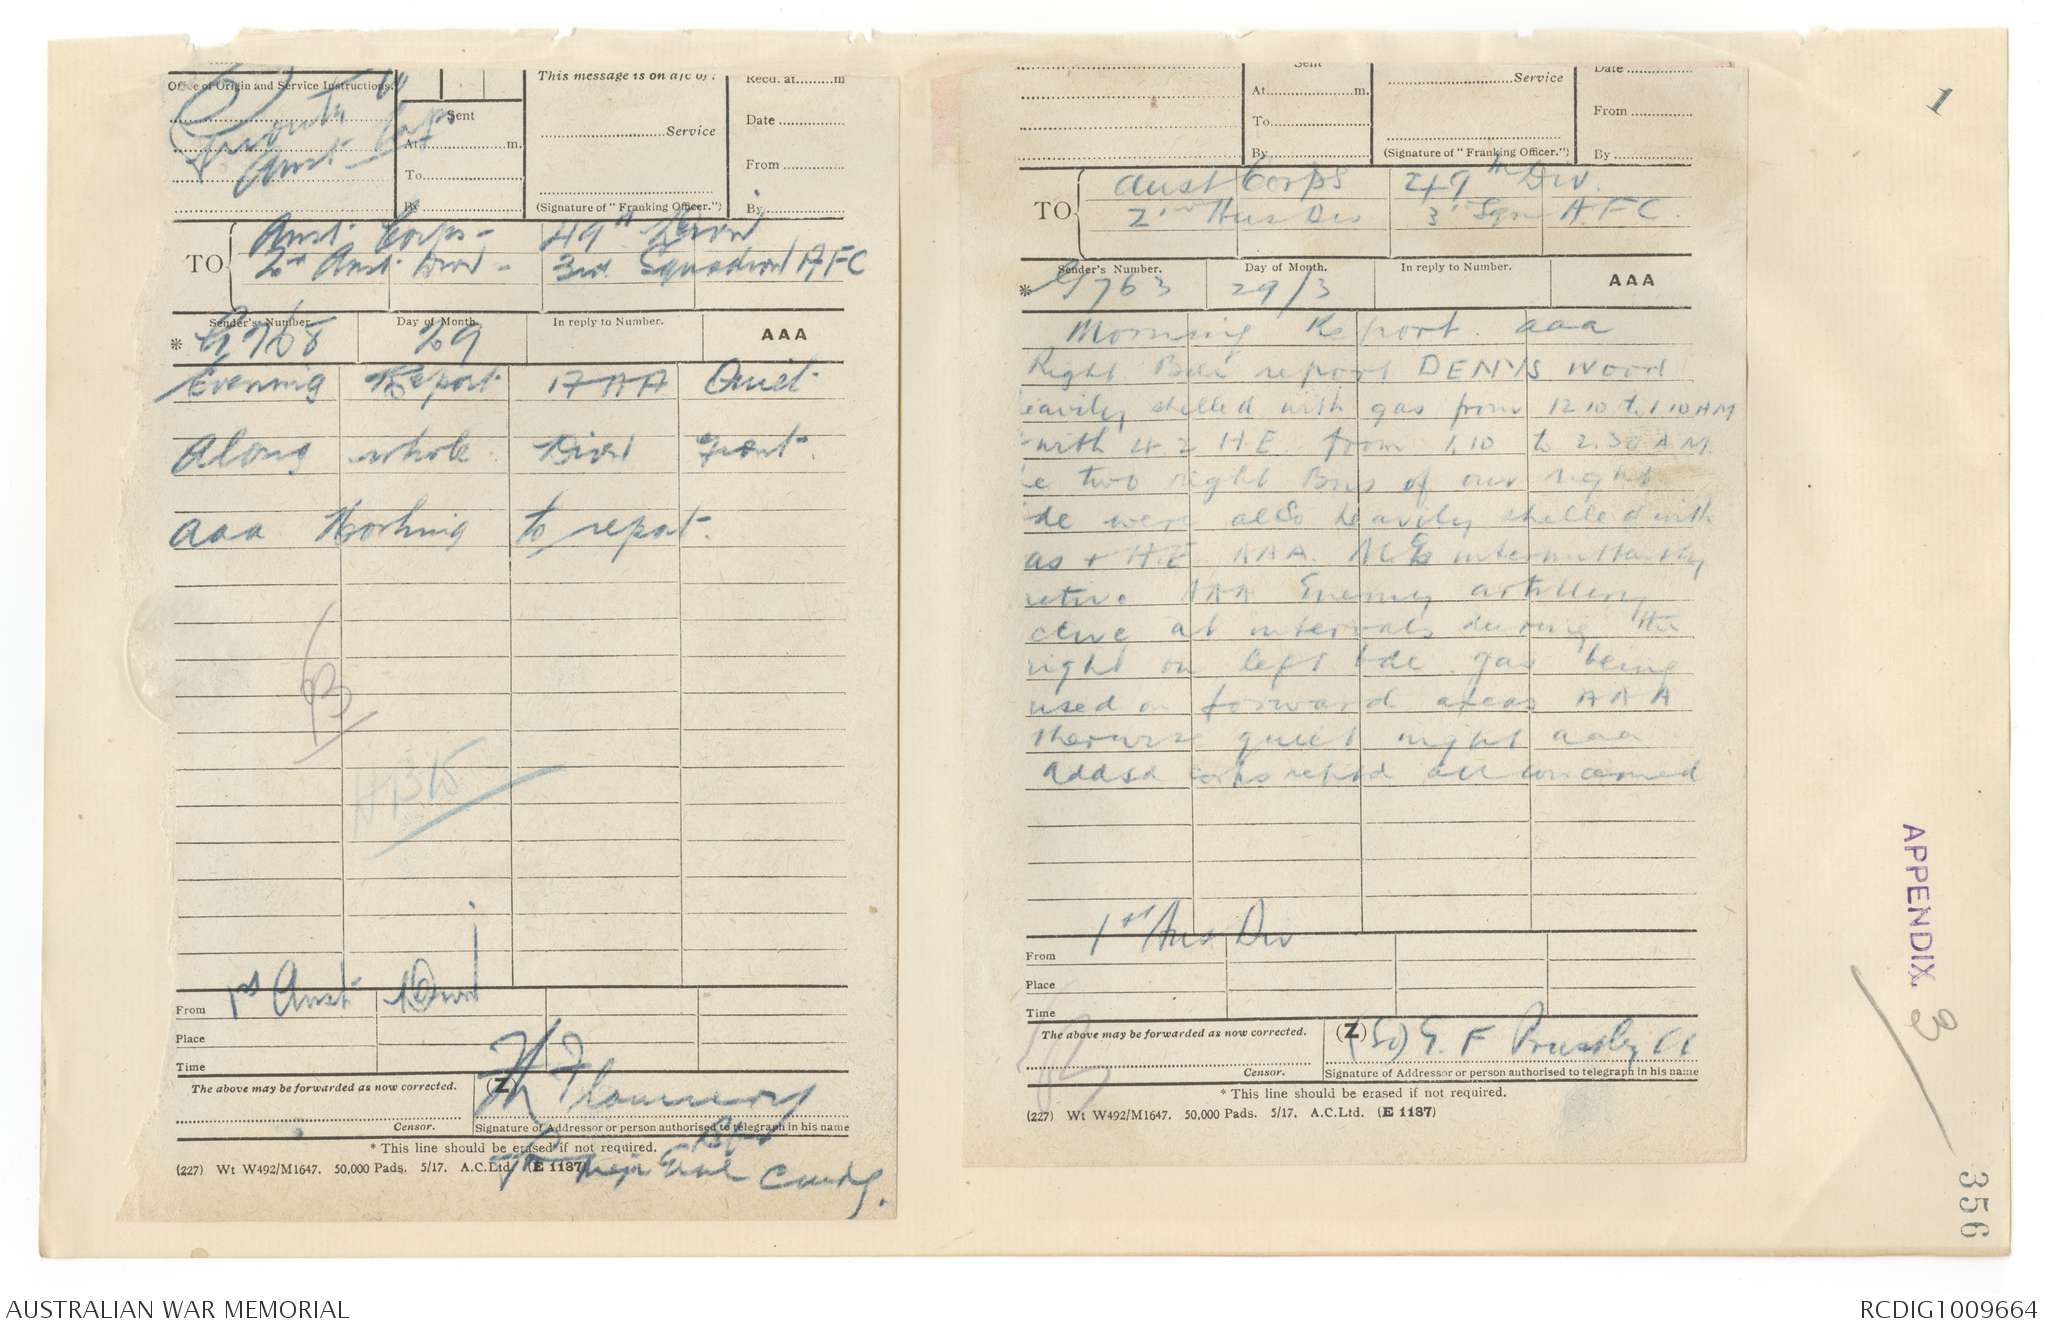 Office of Origin and Service Instructions.
Priority
Aust Corps
Sent
At.........m.
To.........
By.........
This message is on a/c of:
.........Service
(Signature of "Franking Officer.")
Recd. at.........m
Date.........
From.........
By.........
TO
Aust. Corps - 49th Divn
2nd Aust. Divn - 3rd Squadron AFC
Sender's Number.
Day of Month
In reply to Number.
AAA
* G768 29
Evening Report 17 AAA Quiet
Along whole Divnl Front.
aaa Nothing to report.
B
From 1st Aust Divn
Place
Time
The above may be forwarded as now corrected.
(Z)
Censor.
Signature of Addressor or person authorised to telegraph in his name
* This line should be erased if not required.
Maj Genl Cmdg.
(227) Wt W492/M1647. 50,000 Pads. 5/17. A.C.Ltd. (E 1187)
Sent
At.........m.
To.........
By.........
.........Service
(Signature of "Franking Officer.")
Date.........
From.........
By.........
TO
Aust Corps 49th Div.
2nd Aus Div 3rd Sqn A.F.C.
Sender's Number.
Day of Month.
In reply to Number.
AAA
* G763 29/3
Morning Report. aaa
Right Bde report DENYS WOOD
eavily shelled with gas from 12.10 to 1.10 AM
with 4.2 H.E. from 1.10 to 2.30 A.M.
e two right Bns of our right
de were also heavily shelled with
as + H.E AAA M.Gs intermittantly
ctive AAA Enemy artillery
ctive at intervals during the
night on left bde gas being
used on forward areas AAA
therwise quiet night aaa
Addsd corps reptd all concerned
From 1st Aus Div
Place
Time
The above may be forwarded as now corrected.
(Z)
(Sd) G. F
Censor.
Signature of Addressor or person authorised to telegraph in his name
* This line should be erased if not required.
(227) Wt W492/M1647. 50,000 Pads. 5/17. A.C.Ltd. (E 1187)
1
APPENDIX. 3
356
AUSTRALIAN WAR MEMORIAL
RCDIG1009664